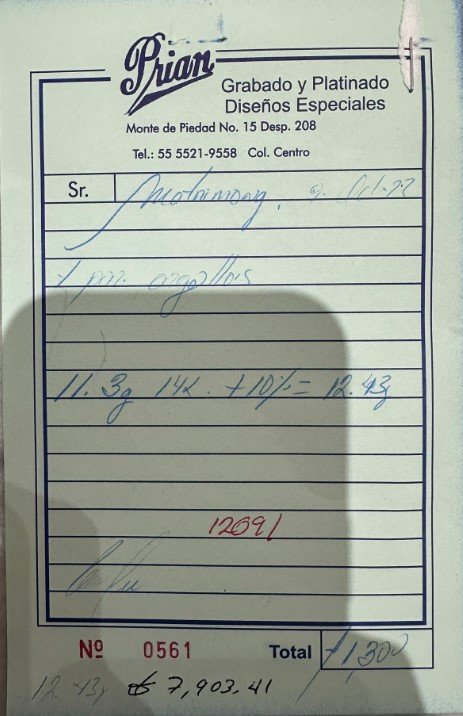 Prian
Grabado y Platinado
Diseños Especiales
Monte de Piedad No. 15 Desp. 208
Tel.: 55 5521-9558 Col. Centro
Sr.
1 par argollas
11.3g 14k. +10%= 12.43g
12691
Nº 0561 Total $1,300
7,903.41